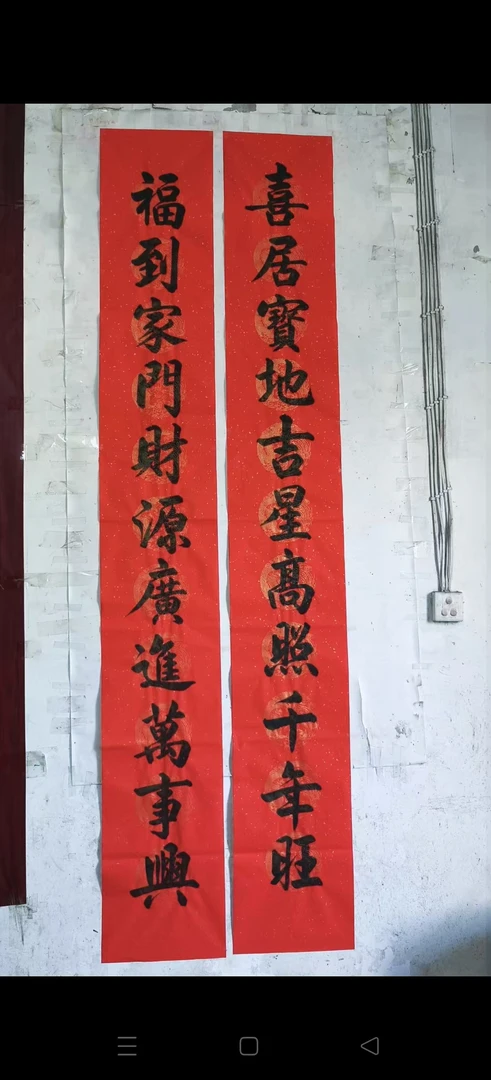 喜居寳地吉星髙照千年旺
福到家門財源廣進萬事興